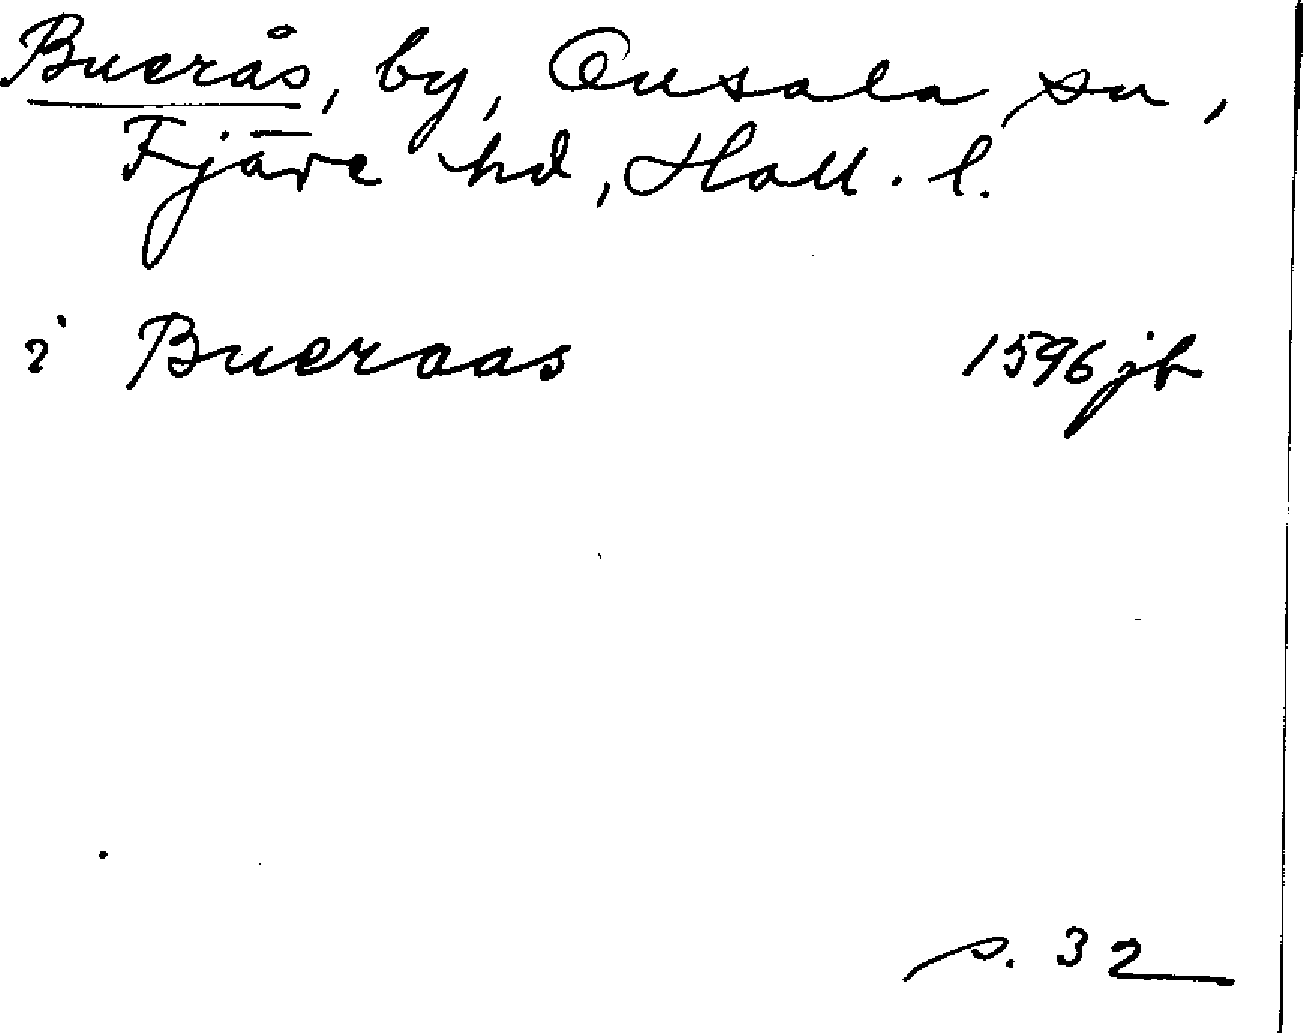 Buerås, by, Onsala sn,
Fjäre hd, Hall. l.
i Bueraas 1596 jb
s. 32